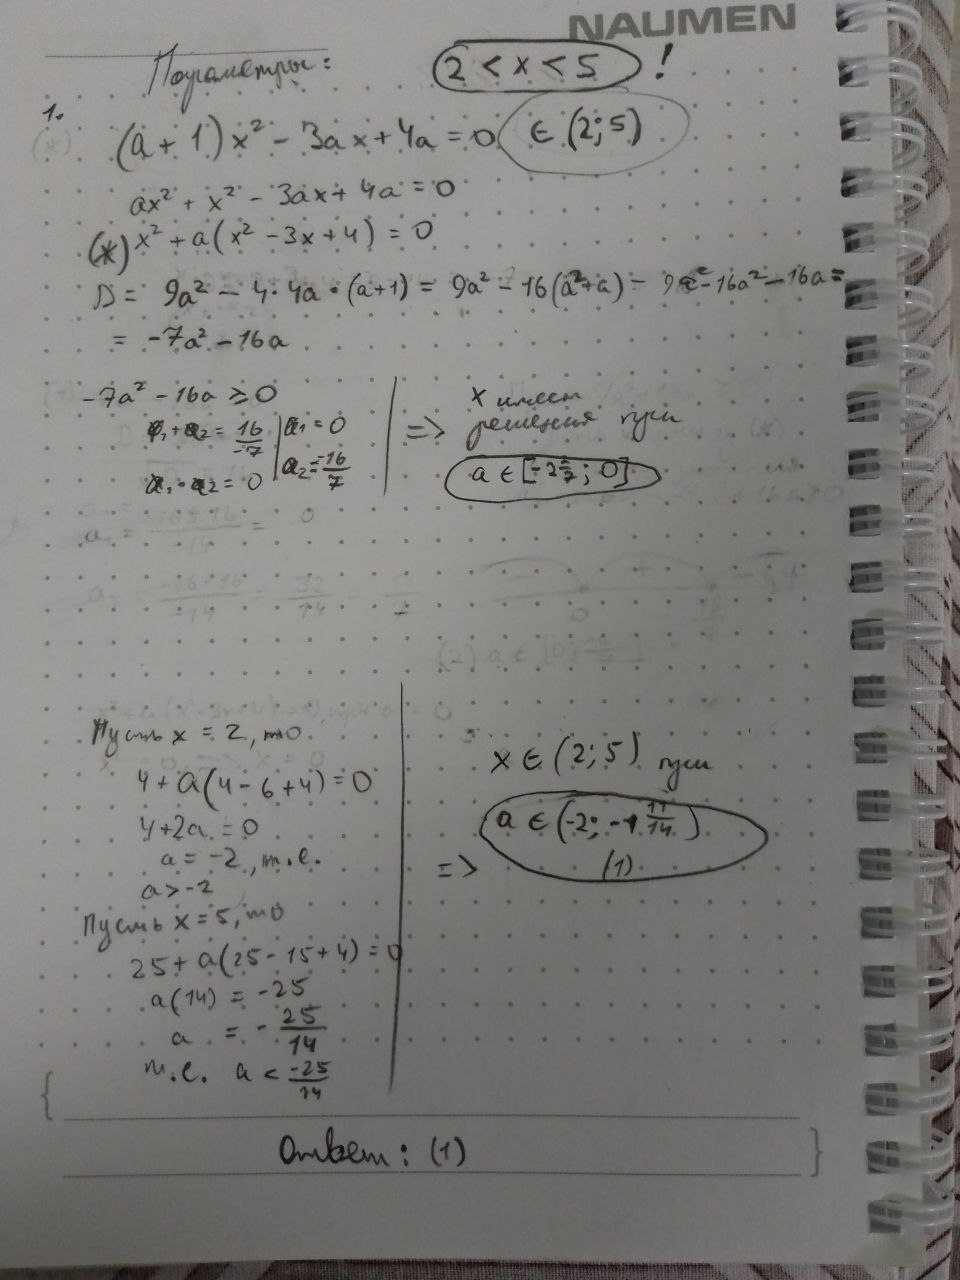 NAUMEN
Параметры:
2 < x < 5 !
1.
(a + 1)x² - 3ax + 4a = 0 ∈ (2; 5)
ax² + x² - 3ax + 4a = 0
(*) x² + a(x² - 3x + 4) = 0
D = 9a² - 4·4a·(a+1) = 9a² - 16(a²+a) = 9a² - 16a² - 16a =
= -7a² - 16a
-7a² - 16a ≥ 0
a₁ + a₂ = 16/-7 | a₁ = 0
a₁·a₂ = 0 | a₂ = -16/7
=> x имеет
решения при
a ∈ [-2 2/7; 0]
Пусть x = 2, то
4 + a(4 - 6 + 4) = 0
4 + 2a = 0
a = -2, т.е.
a > -2
Пусть x = 5, то
25 + a(25 - 15 + 4) = 0
a(14) = -25
a = -25/14
т.е. a < -25/14
=> x ∈ (2; 5) при
a ∈ (-2; -1 11/14)
(1)
Ответ: (1)